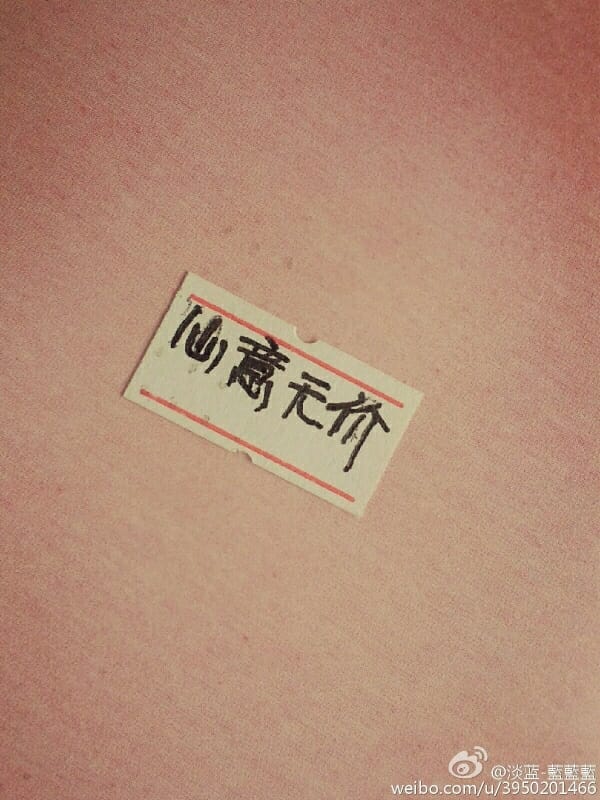 仙意无价
@淡蓝-藍藍藍
weibo.com/u/3950201466